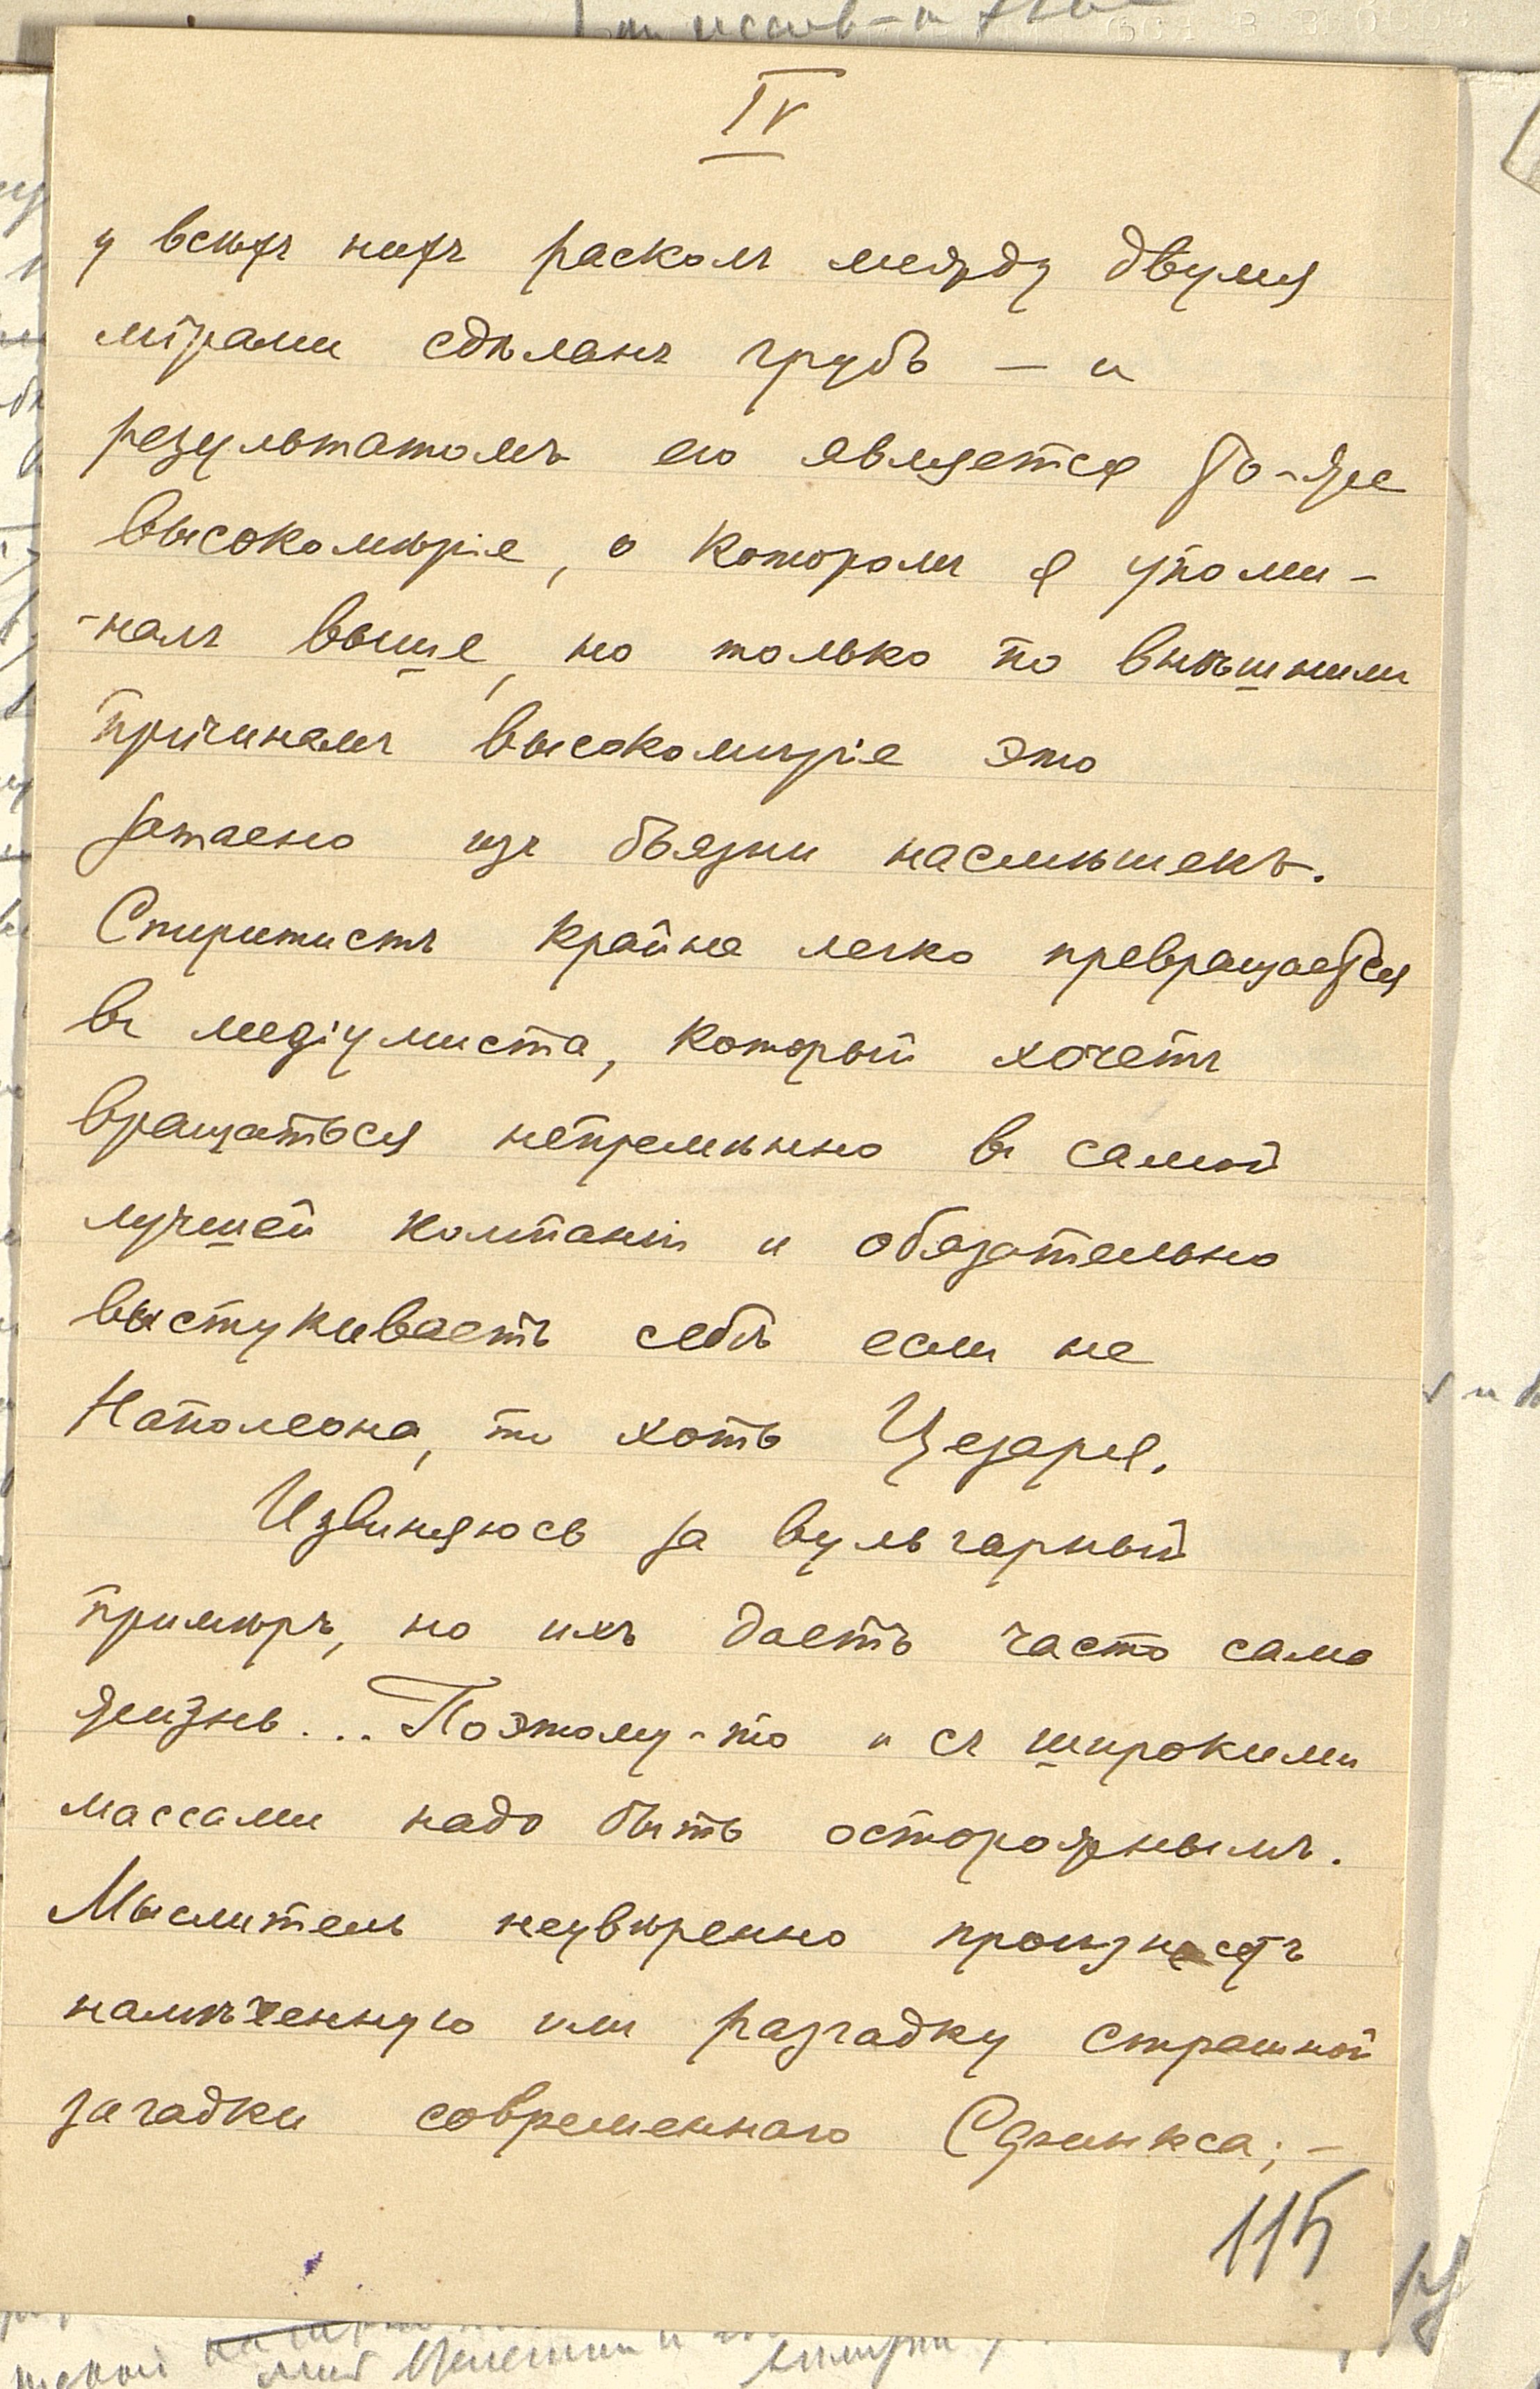 IV
у всѣхъ нихъ расколъ между двумя
мірами сдѣланъ грубъ — и
результатомъ его является то-же
высокомѣріе, о которомъ я упоми-
-налъ выше, но только по внѣшнимъ
причинамъ высокомѣріе это
затаено изъ боязни насмѣшекъ.
Спиритистъ крайне легко превращается
въ медіумиста, который хочетъ
вращаться непремѣнно въ самой
лучшей компаніи и обязательно
выстукиваетъ себѣ если не
Наполеона, то хоть Цезаря.
Извиняюсь за вульгарный
примѣръ, но ихъ даетъ часто сама
жизнь... Поэтому-то и съ широкими
массами надо быть осторожнымъ.
Мыслитель неувѣренно произнесетъ
намѣченную имъ разгадку страшной
загадки современнаго Сфинкса; —
115